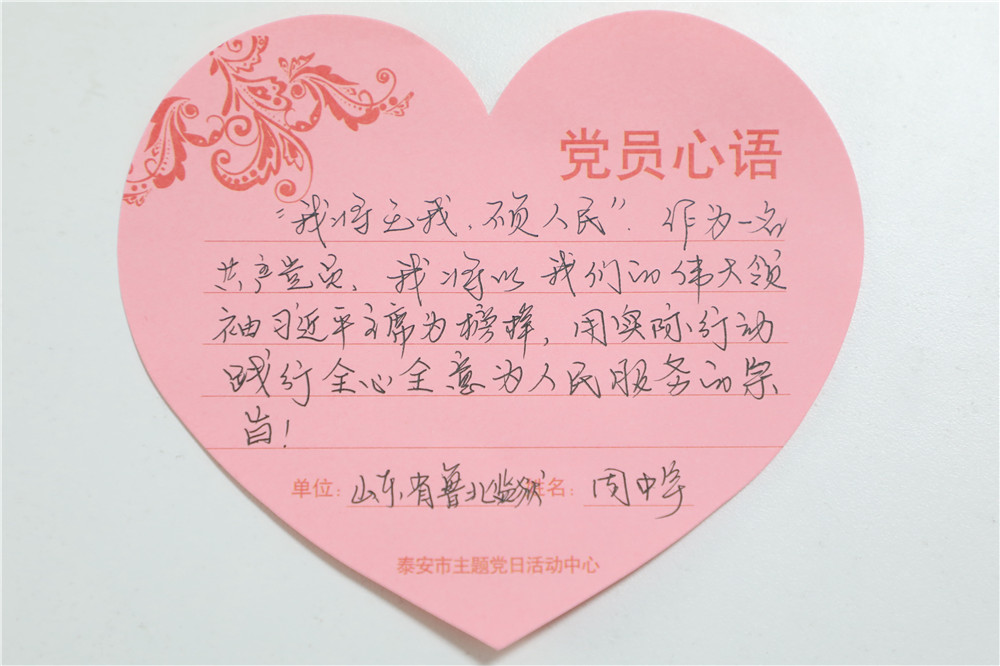 党员心语
“我将无我,不负人民”.作为一名
共产党员,我将以我们的伟大领
袖习近平主席为榜样,用实际行动
践行全心全意为人民服务的宗
旨!
单位:山东省鲁北监狱 姓名:周中宇
泰安市主题党日活动中心